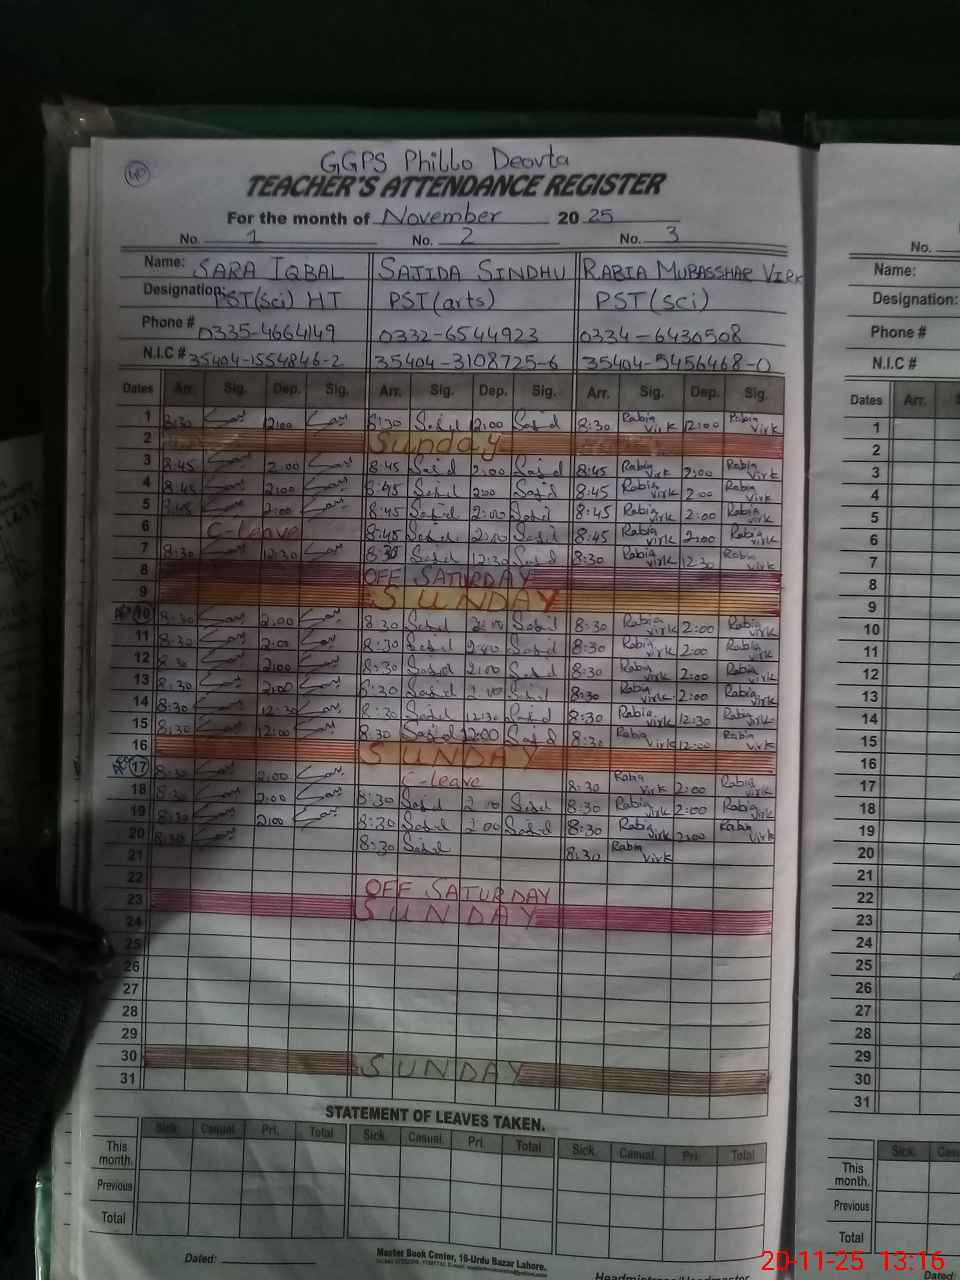 40
GGPS Phillo Deovta
TEACHER'S ATTENDANCE REGISTER
For the month of November 2025
No. 1 No. 2 No. 3 No.
Name: SARA IQBAL SAJIDA SINDHU RABIA MUBASSHAR VIRK Name:
Designation: PST(sci) HT PST(arts) PST(sci) Designation:
Phone # 0335-4664149 0332-6544923 0334-6430508 Phone #
N.I.C # 35404-1554846-2 35404-3108725-6 35404-5456468-0 N.I.C #
Dates Arr. Sig. Dep. Sig. Arr. Sig. Dep. Sig. Arr. Sig. Dep. Sig. Dates Arr.
1 8:30 12:00 8:30 12:00 8:30 Rabia virk 12:00 Rabia virk 1
2 Sunday 2
3 8:45 2:00 8:45 2:00 8:45 Rabia virk 2:00 Rabia virk 3
4 8:45 2:00 8:45 2:00 8:45 Rabia virk 2:00 Rabia virk 4
5 8:45 2:00 8:45 2:00 8:45 Rabia virk 2:00 Rabia virk 5
6 C-leave 8:45 2:00 8:45 Rabia virk 2:00 Rabia virk 6
7 8:30 12:30 8:30 12:30 8:30 Rabia virk 12:30 Rabia virk 7
8 OFF SATURDAY 8
9 SUNDAY 9
10 8:30 2:00 8:30 2:00 8:30 Rabia virk 2:00 Rabia virk 10
11 8:30 2:00 8:30 2:00 8:30 Rabia virk 2:00 Rabia virk 11
12 8:30 2:00 8:30 2:00 8:30 Rabia virk 2:00 Rabia virk 12
13 8:30 2:00 8:30 2:00 8:30 Rabia virk 2:00 Rabia virk 13
14 8:30 12:30 8:30 12:30 8:30 Rabia virk 12:30 Rabia virk 14
15 8:30 12:00 8:30 12:00 8:30 Rabia virk 12:00 Rabia virk 15
16 SUNDAY 16
17 8:30 2:00 C-leave 8:30 Rabia virk 2:00 Rabia virk 17
18 8:30 2:00 8:30 2:00 8:30 Rabia virk 2:00 Rabia virk 18
19 8:30 2:00 8:30 2:00 8:30 Rabia virk 2:00 Rabia virk 19
20 8:30 8:30 8:30 Rabia virk 20
21 21
22 OFF SATURDAY 22
23 SUNDAY 23
24 24
25 25
26 26
27 27
28 28
29 29
30 SUNDAY 30
31 31
STATEMENT OF LEAVES TAKEN.
Sick. Casual. Pri. Total Sick. Casual. Pri. Total Sick. Casual. Pri. Total Sick.
This month. This month.
Previous Previous
Total Total
Dated: Master Book Center, 16-Urdu Bazar Lahore. Dated:
Headmistress/Headmaster
20-11-25 13:16